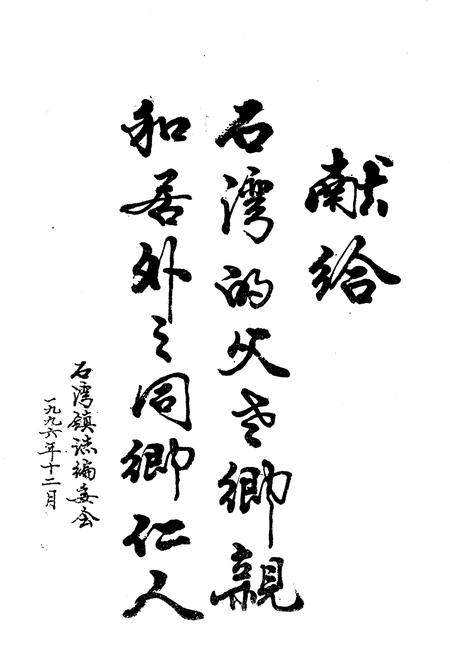 献给
石湾的父老乡親
和居外之同乡仁人
石湾镇志编委会
一九九六年十二月